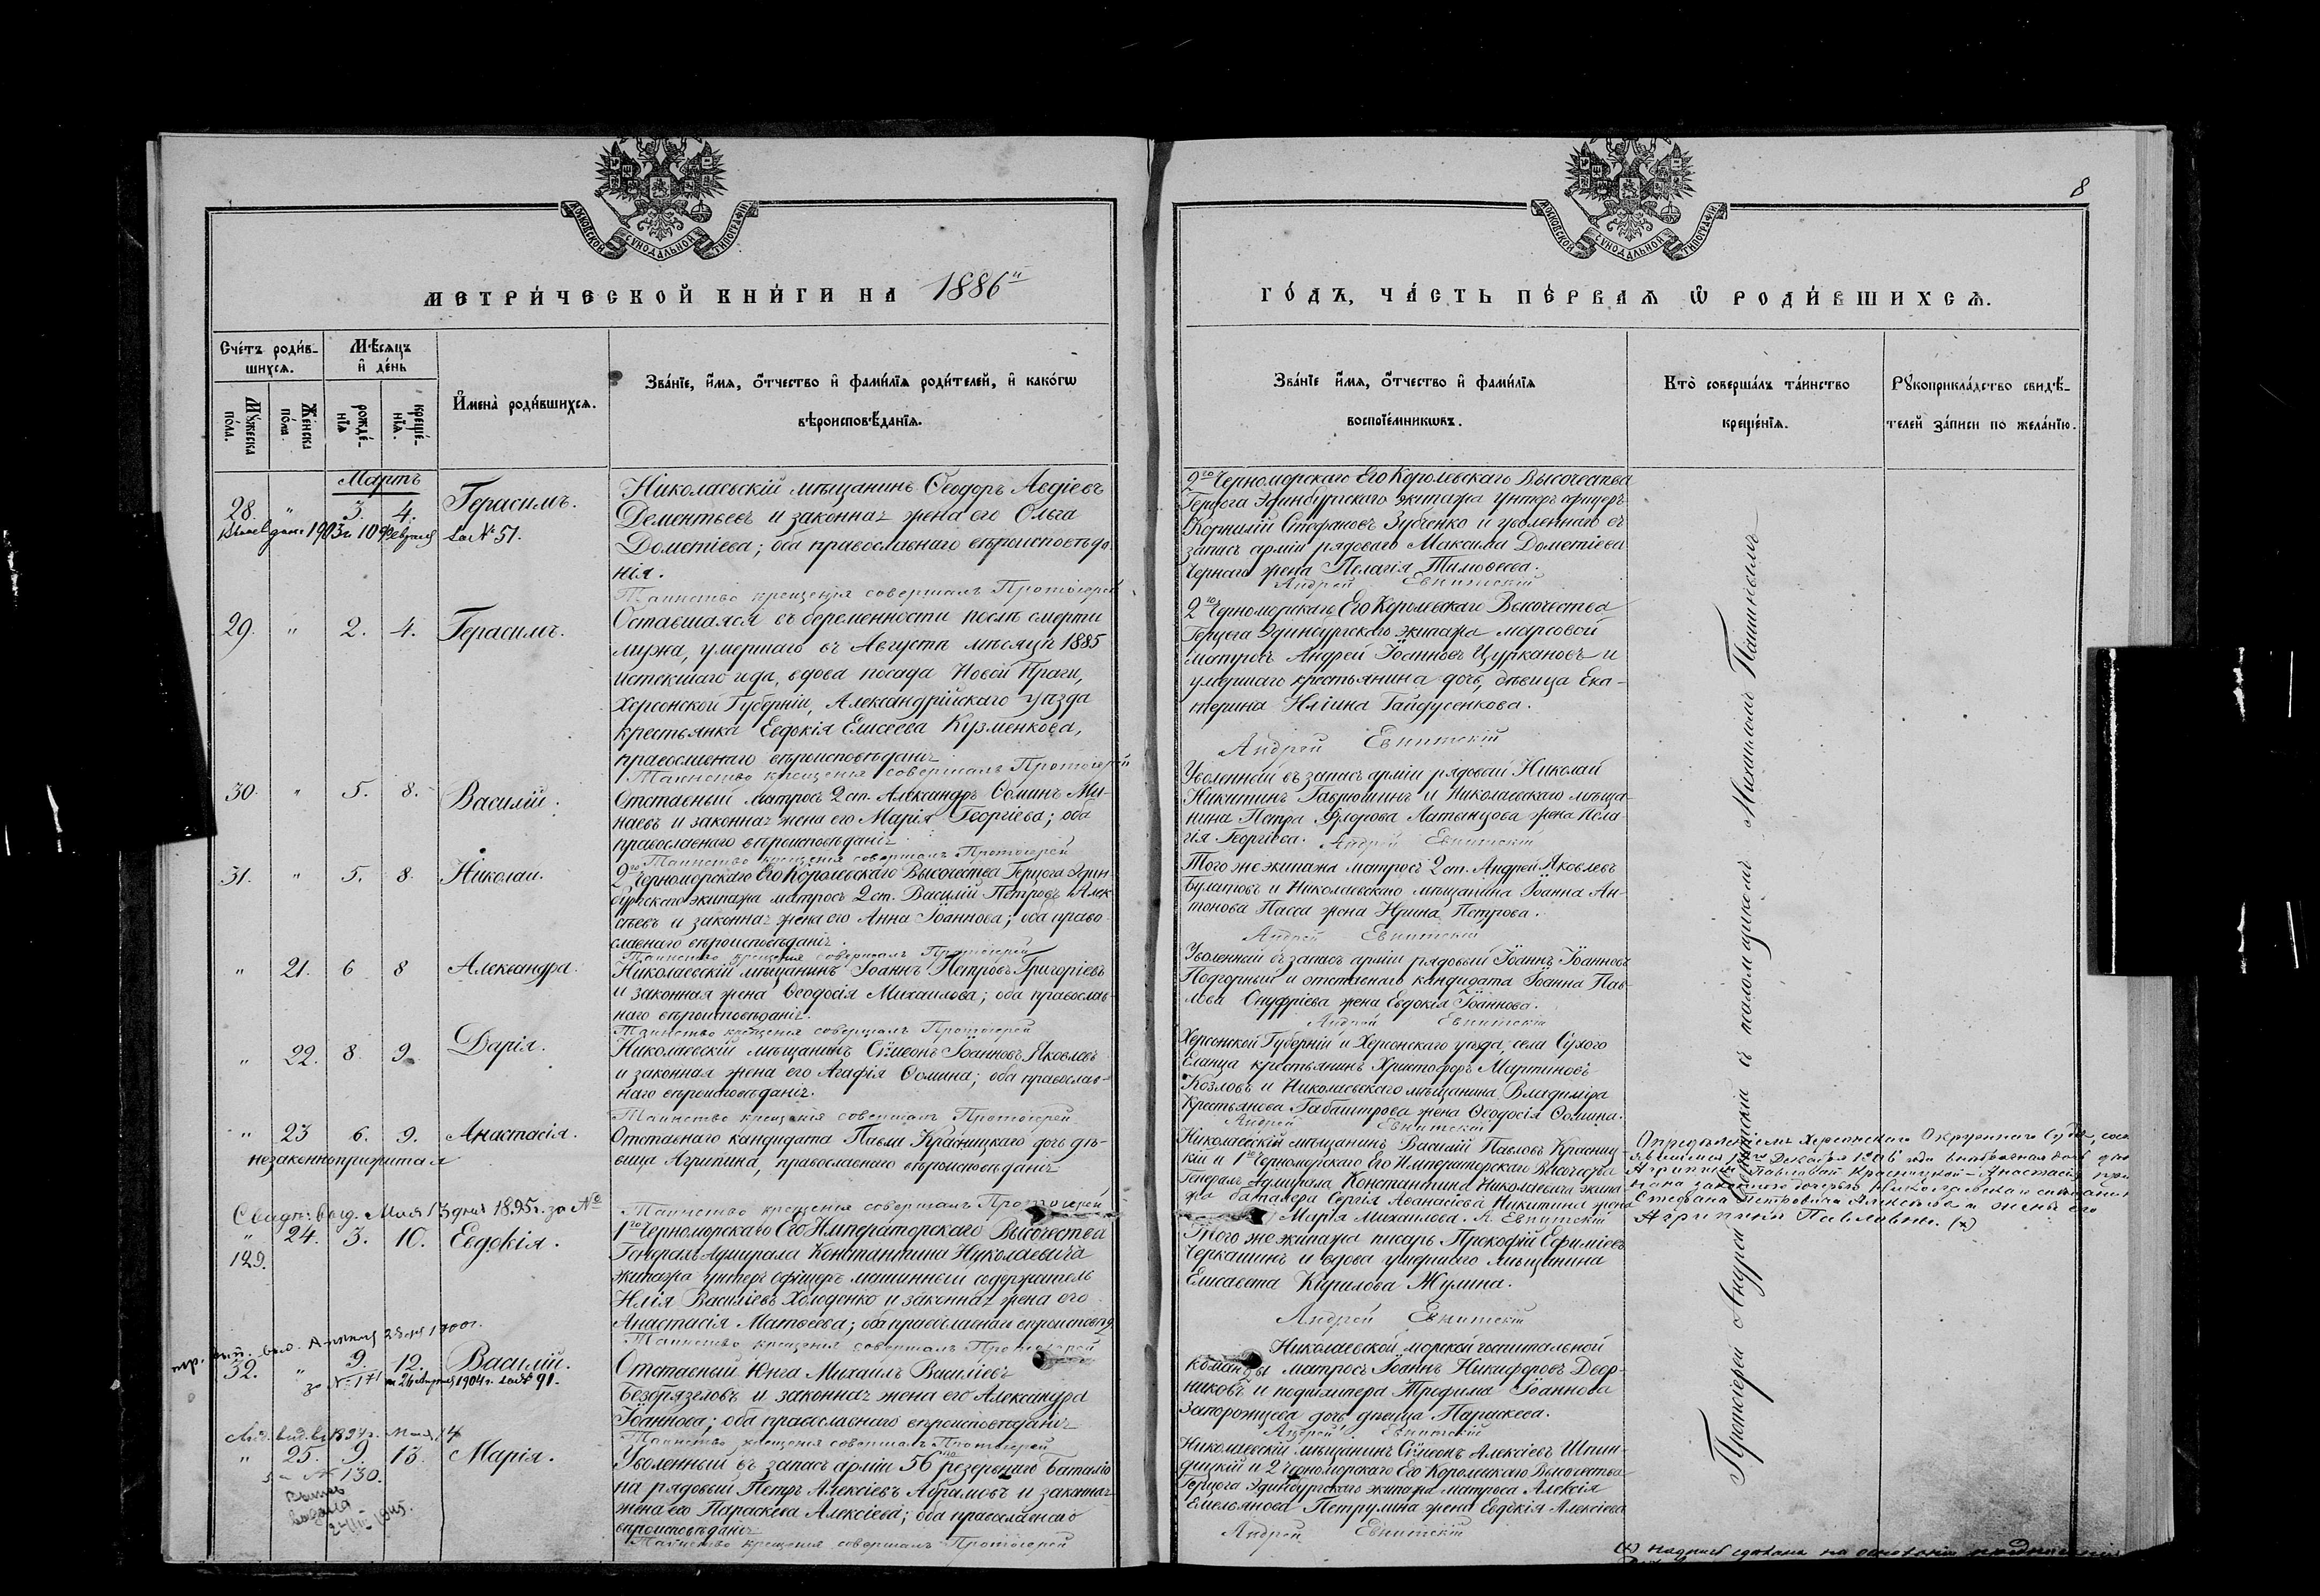 8
МОСКОВСКОЙ СѴНОДАЛЬНОЙ ТИПОГРАФІИ
МОСКОВСКОЙ СѴНОДАЛЬНОЙ ТИПОГРАФІИ
МЕТРИ́ЧЕСКОЙ КНИ́ГИ НА 1886й
ГО́ДЪ, ЧА́СТЬ ПЕ́РВАЯ Ѿ РОДИ́ВШИХСЯ.
Сче́тъ роди́в-
шихся.
Мѣ́сяцъ
и҆ де́нь
Мꙋ́жеска
пола.
Же́нска
по́ла.
рожде́-
нїя
креще́-
нїя.
И҆мена̀ роди́вшихся.
Зва́нїе, и҆́мя, ѻ҆́тчество и҆ фами́лїя роди́телей, и҆ како́гѡ
вѣроисповѣ́данїя.
Зва́нїе и҆́мя, ѻ҆́тчество и҆ фами́лїя
воспрїе́мникѡвъ.
Кто̀ соверша́лъ та́инство
креще́нїя.
Рꙋкоприкла́дство свидѣ́-
телей за́писи по жела́нїю.
Мартъ
28. " 3. 4. Герасимъ.
дан. 1903 г. 10 Февраля за № 51.
Николаевскій мѣщанинъ Ѳеодоръ Авдіевъ
Дементьевъ и законная жена его Ольга
Дометіева; оба православнаго вѣроисповѣда
нія.
Таинство крещенія совершалъ Протоіерей
2го Черноморскаго Его Королевскаго Высочества
Герцога Эдинбургскаго экипажа унтеръ офицеръ
Корнилій Стефановъ Зубченко и уволеннаго въ
запасъ арміи рядоваго Максима Дометіева
Чернаго жена Пелагія Тимоѳеева.
Андрей Евнитскій
29. " 2. 4. Герасимъ.
Оставшаяся въ беременности послѣ смерти
мужа, умершаго въ Августѣ мѣсяцѣ 1885
истекшаго года, вдова посада Новой Праги,
Херсонской Губерніи, Александрійскаго уѣзда
крестьянка Евдокія Елисеева Кузменкова,
православнаго вѣроисповѣданія
Таинство крещенія совершалъ Протоіерей
2го Черноморскаго Его Королевскаго Высочества
Герцога Эдинбургскаго экипажа марсовой
матросъ Андрей Іоанновъ Цуркановъ и
умершаго крестьянина дочь, дѣвица Ека-
терина Иліина Гайдусенкова.
Андрей Евнитскій
30. " 5. 8. Василій.
Отставный матросъ 2 ст. Александръ Ѳоминъ Ми-
наевъ и законная жена его Марія Георгіева; оба
православнаго вѣроисповѣданія
Таинство крещенія совершалъ Протоіерей
Уволенный въ запасъ арміи рядовый Николай
Никитинъ Гаврюшинъ и Николаевскаго мѣща-
нина Петра Флорова Латынцова жена Пела-
гія Георгіева. Андрей Евнитскій
31. " 5. 8. Николай.
2го Черноморскаго Его Королевскаго Высочества Герцога Эдин-
бургскаго экипажа матросъ 2 ст. Василій Петровъ Алек
сѣевъ и законная жена его Анна Іоаннова; оба право-
славнаго вѣроисповѣданія.
Таинство крещенія совершалъ Протоіерей
Того же экипажа матросъ 2 ст. Андрей Яковлевъ
Булатовъ и Николаевскаго мѣщанина Іоанна Ан-
тонова Пасса жена Ирина Петрова.
Андрей Евнитскій
" 21. 6 8 Александра.
Николаевскій мѣщанинъ Іоаннъ Петровъ Григоріевъ
и законная жена Ѳеодосія Михаилова; оба православ-
наго вѣроисповѣданія.
Таинство крещенія совершалъ Протоіерей
Уволенный въ запасъ арміи рядовый Іоаннъ Іоанновъ
Подгорный и отставнаго кандидата Іоанна Пав-
лова Онуфріева жена Евдокія Іоаннова.
Андрей Евнитскій
" 22. 8. 9. Дарія.
Николаевскій мѣщанинъ Сѵмеонъ Іоанновъ Яковлевъ
и законная жена его Агафія Ѳомина; оба православ-
наго вѣроисповѣданія.
Таинство крещенія совершалъ Протоіерей
Херсонской Губерніи и Херсонскаго уѣзда, села Сухого
Еланца крестьянинъ Христофоръ Мартиновъ
Козловъ и Николаевскаго мѣщанина Владиміра
Крестьянова Табаштрова жена Ѳеодосія Ѳомина.
Андрей Евнитскій
" 23 6. 9. Анастасія.
незаконноприжитая
Отставнаго кандидата Павла Красницкаго дочь дѣ-
вица Агрипина, православнаго вѣроисповѣданія
Таинство крещенія совершалъ Протоіерей
Николаевскій мѣщанинъ Василій Павловъ Красниц-
кій и 1го Черноморскаго Его Императорскаго Высочества
Генералъ Адмирала Константина Николаевича экипа-
жа баталера Сергія Аѳанасіева Никитина жена
Марія Михаилова. А. Евнитскій
Опредѣленіемъ Херсонскаго Окружнаго Суда,
Агрипины Павловой Красницкой - Анастасія
Стефана Петровича Алексѣева и жены его
Агрипины Павловны. (х)
Свидѣт. выд. Мая 13 дня 1895 г. за №
129.
" 24. 3. 10. Евдокія.
1го Черноморскаго Его Императорскаго Высочества
Генералъ Адмирала Константина Николаевича
экипажа унтеръ офицеръ машинный содержатель
Илія Василіевъ Холоденко и законная жена его
Анастасія Матѳеева; оба православнаго вѣроисповѣд.
Таинство крещенія совершалъ Протоіерей
Того же экипажа писарь Прокофій Ефиміевъ
Черкашинъ и вдова умершаго мѣщанина
Елисавета Кирилова Жулина.
Андрей Евнитскій
Апрѣля 28 дня 1900 г.
за № 171
32. " 9. 12. Василій.
26 Апрѣля 1904 г. за № 91.
Отставный Юнга Михаилъ Василіевъ
Бездрязеловъ и законная жена его Александра
Іоаннова; оба православнаго вѣроисповѣданія
Таинство крещенія совершалъ Протоіерей
Николаевской морской госпитальной
команды матросъ Іоаннъ Никифоровъ Двор-
никовъ и подшхипера Трофима Іоаннова
Запорожцева дочь дѣвица Параскева.
Андрей Евнитскій
1894 г. Мая 14
" 25. 9. 13. Марія.
№ 130.
Уволенный въ запасъ арміи 56 резервнаго баталіо
на рядовый Петръ Алексіевъ Абрамовъ и законная
жена его Параскева Алексіева; оба православнаго
вѣроисповѣданія
Таинство крещенія совершалъ Протоіерей
Николаевскій мѣщанинъ Сѵмеонъ Алексіевъ Шпин-
дицкій и 2 Черноморскаго Его Королевскаго Высочества
Герцога Эдинбургскаго экипажа матроса Алексія
Емельянова Петрулина жена Евдокія Алексіева
Андрей Евнитскій
Протоіерей Андрей Евнитскій съ псаломщикомъ Михаиломъ Пашинскимъ
(х) Надпись сдѣлана на основаніи